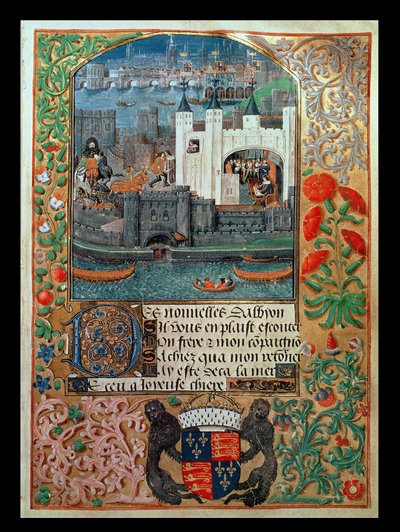 Des nouuelles Dalbyon
Sil vous en plaist escouter
Mon frere & mon compaignon
Sachiez qua mon retourner
Jay este deca la mer
Receu a Joyeuse chiere